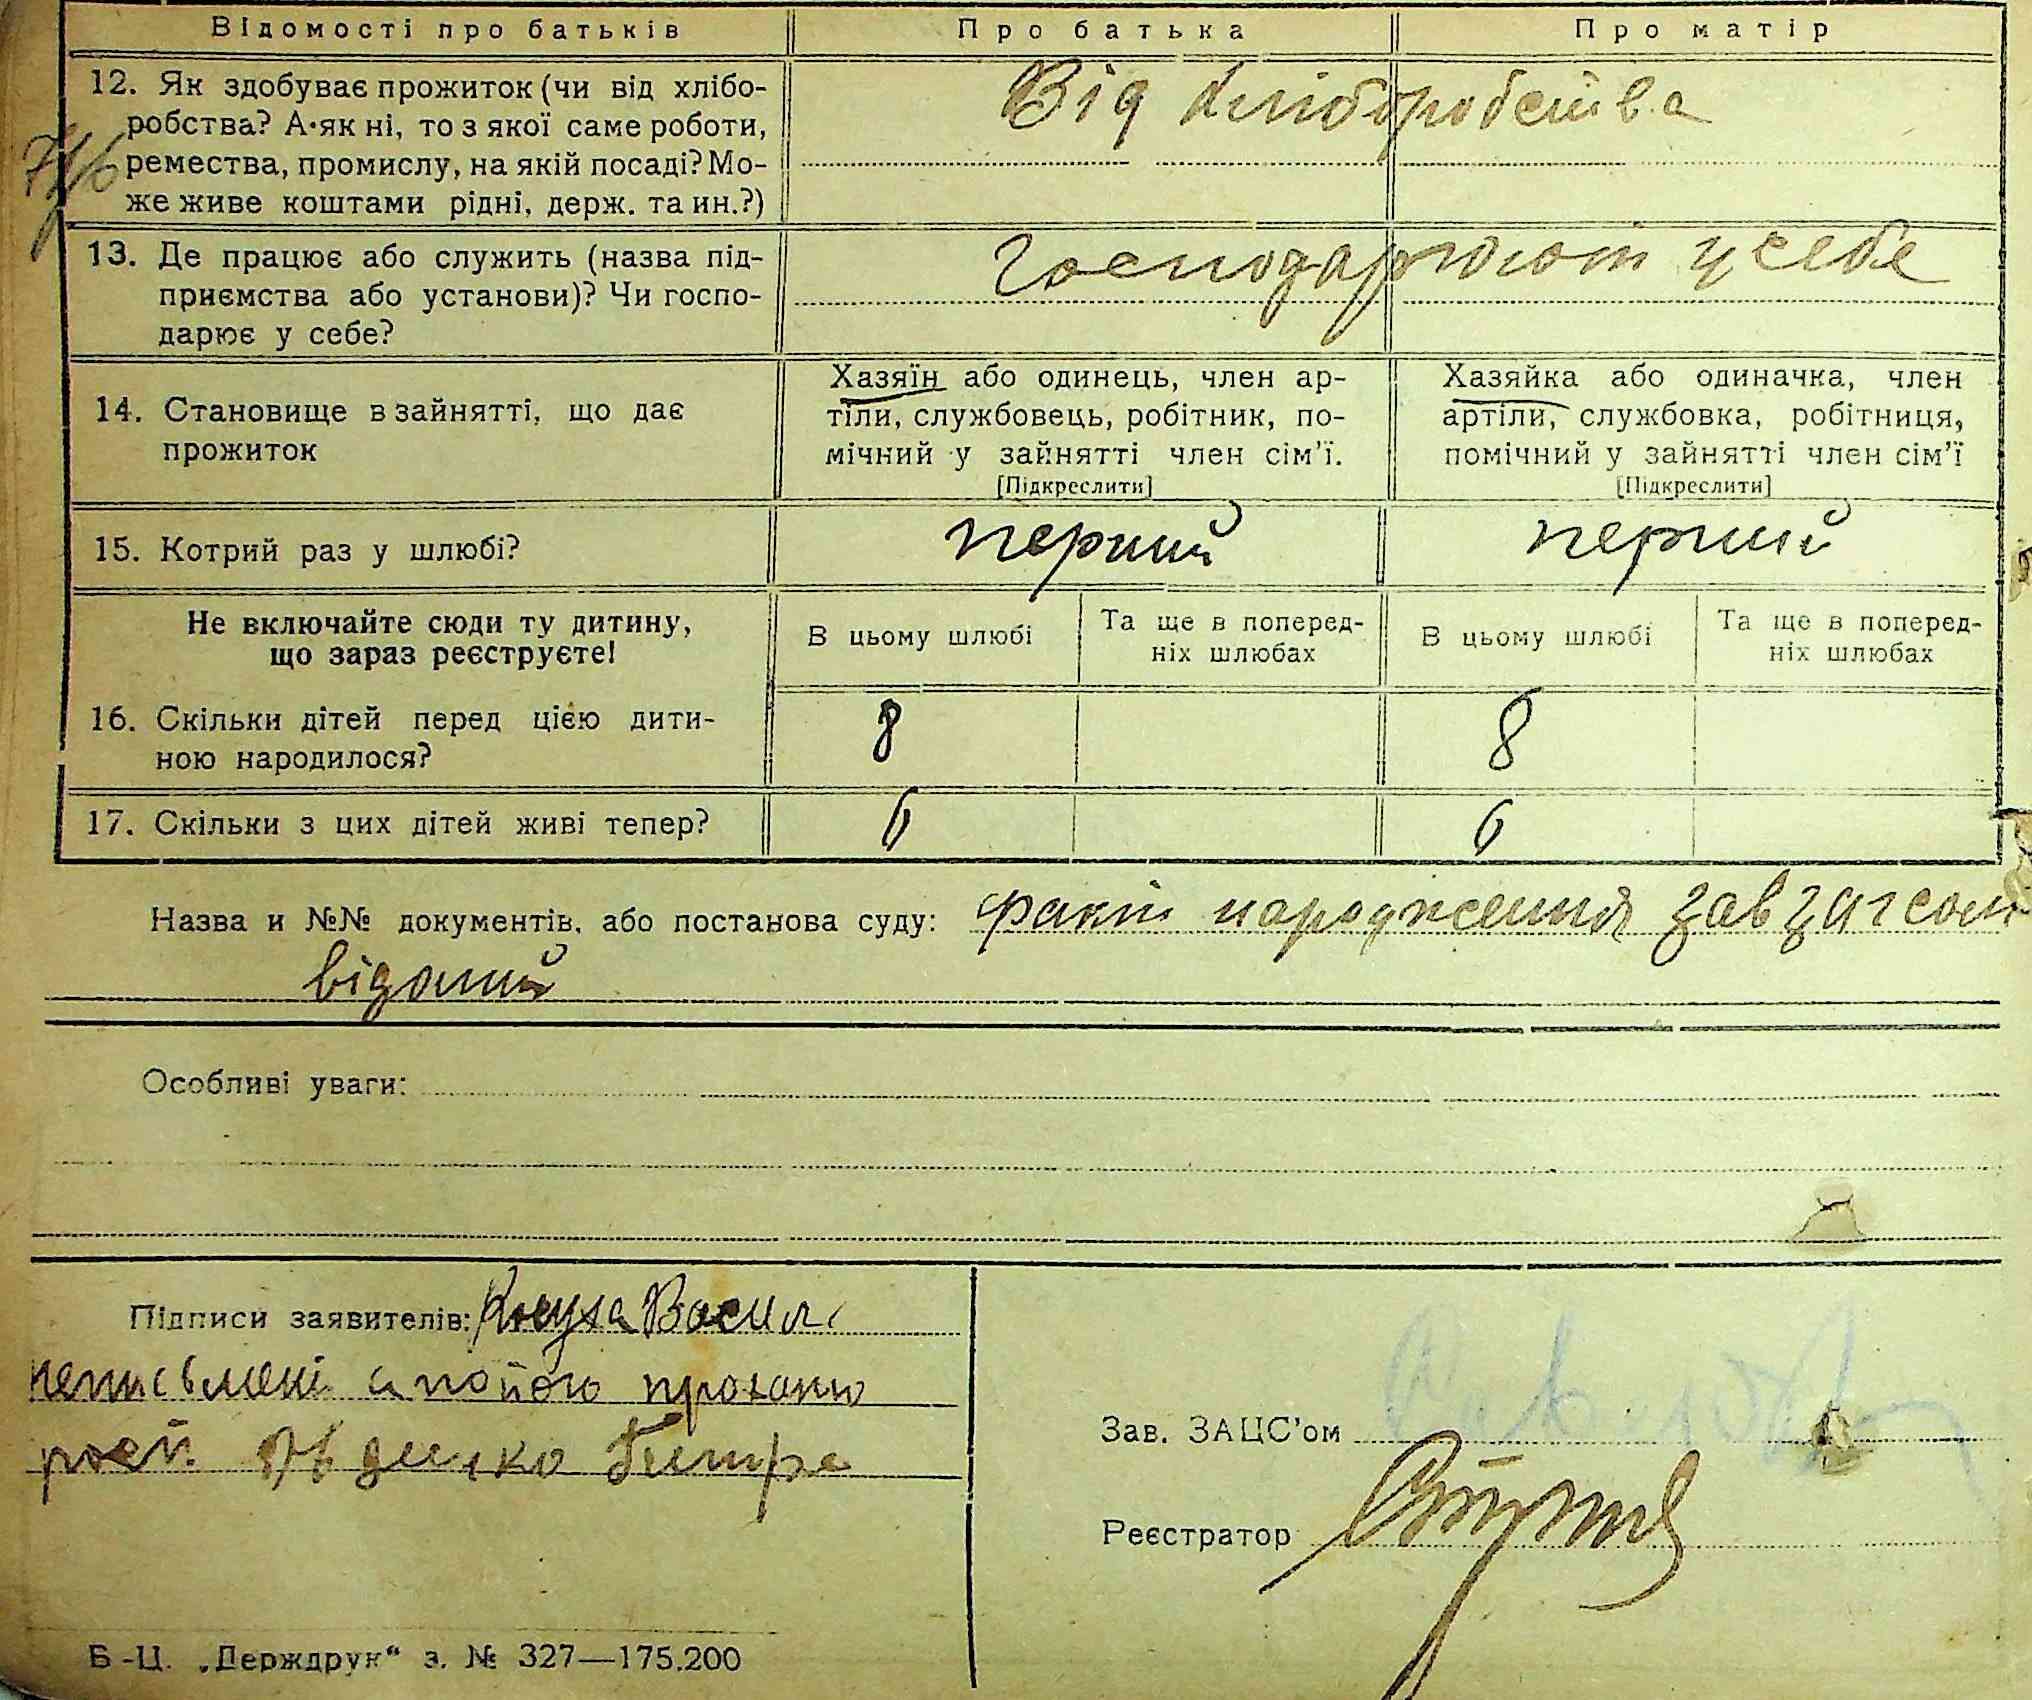 Відомості про батьків
Про батька
Про матір
12. Як здобуває прожиток (чи від хлібо-
робства? А як ні, то з якої саме роботи,
ремества, промислу, на якій посаді? Мо-
же живе коштами рідні, держ. та ин.?)
Від хліборобства
13. Де працює або служить (назва під-
приємства або установи)? Чи госпо-
дарює у себе?
Господарюют у себе
14. Становище в зайнятті, що дає
прожиток
Хазяїн або одинець, член ар-
тіли, службовець, робітник, по-
мічний у зайнятті член сім'ї.
[Підкреслити]
Хазяйка або одиначка, член
артіли, службовка, робітниця,
помічний у зайнятті член сім'ї
[Підкреслити]
15. Котрий раз у шлюбі?
перший
перший
Не включайте сюди ту дитину,
що зараз реєструєте!
В цьому шлюбі
Та ще в поперед-
ніх шлюбах
В цьому шлюбі
Та ще в поперед-
ніх шлюбах
16. Скільки дітей перед цією дити-
ною народилося?
8
8
17. Скільки з цих дітей живі тепер?
6
6
Назва и №№ документів, або постанова суду: факт народження завзагсом
відомий
Особливі уваги:
Підписи заявителів: Василь
неписьмені а по його проханю
Зав. ЗАЦС'ом
Реєстратор
Б-Ц. „Держдрук“ з. № 327—175.200